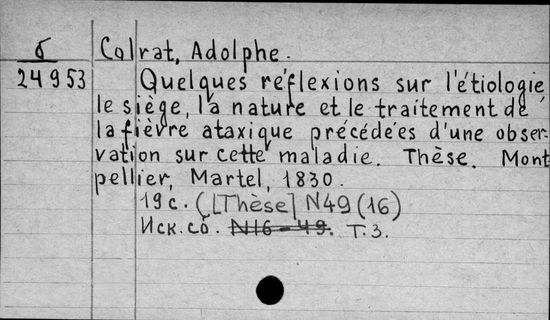 б Colrat, Adolphe.
24953 Quelques réflexions sur l'étiologie
le siège, la nature et le traitement de
la fièvre ataxique précédées d'une obser-
vation sur cette maladie. Thèse. Mont
pellier, Martel, 1830.
19 с. ([Thèse] N49 (16)
Иск. со. N16-49. Т.3.